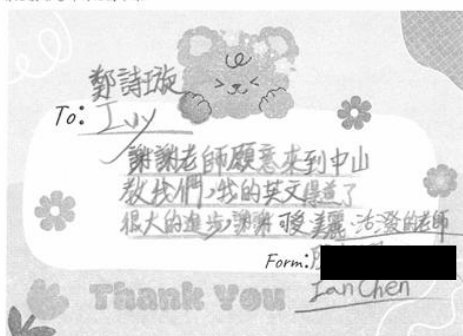 鄭詩璇
To: Ivy
謝謝老師願意來到中山
教我們,我的英文得道了
很大的進步,謝謝可愛美麗、活潑的老師
Form:
Ian Chen
Thank You